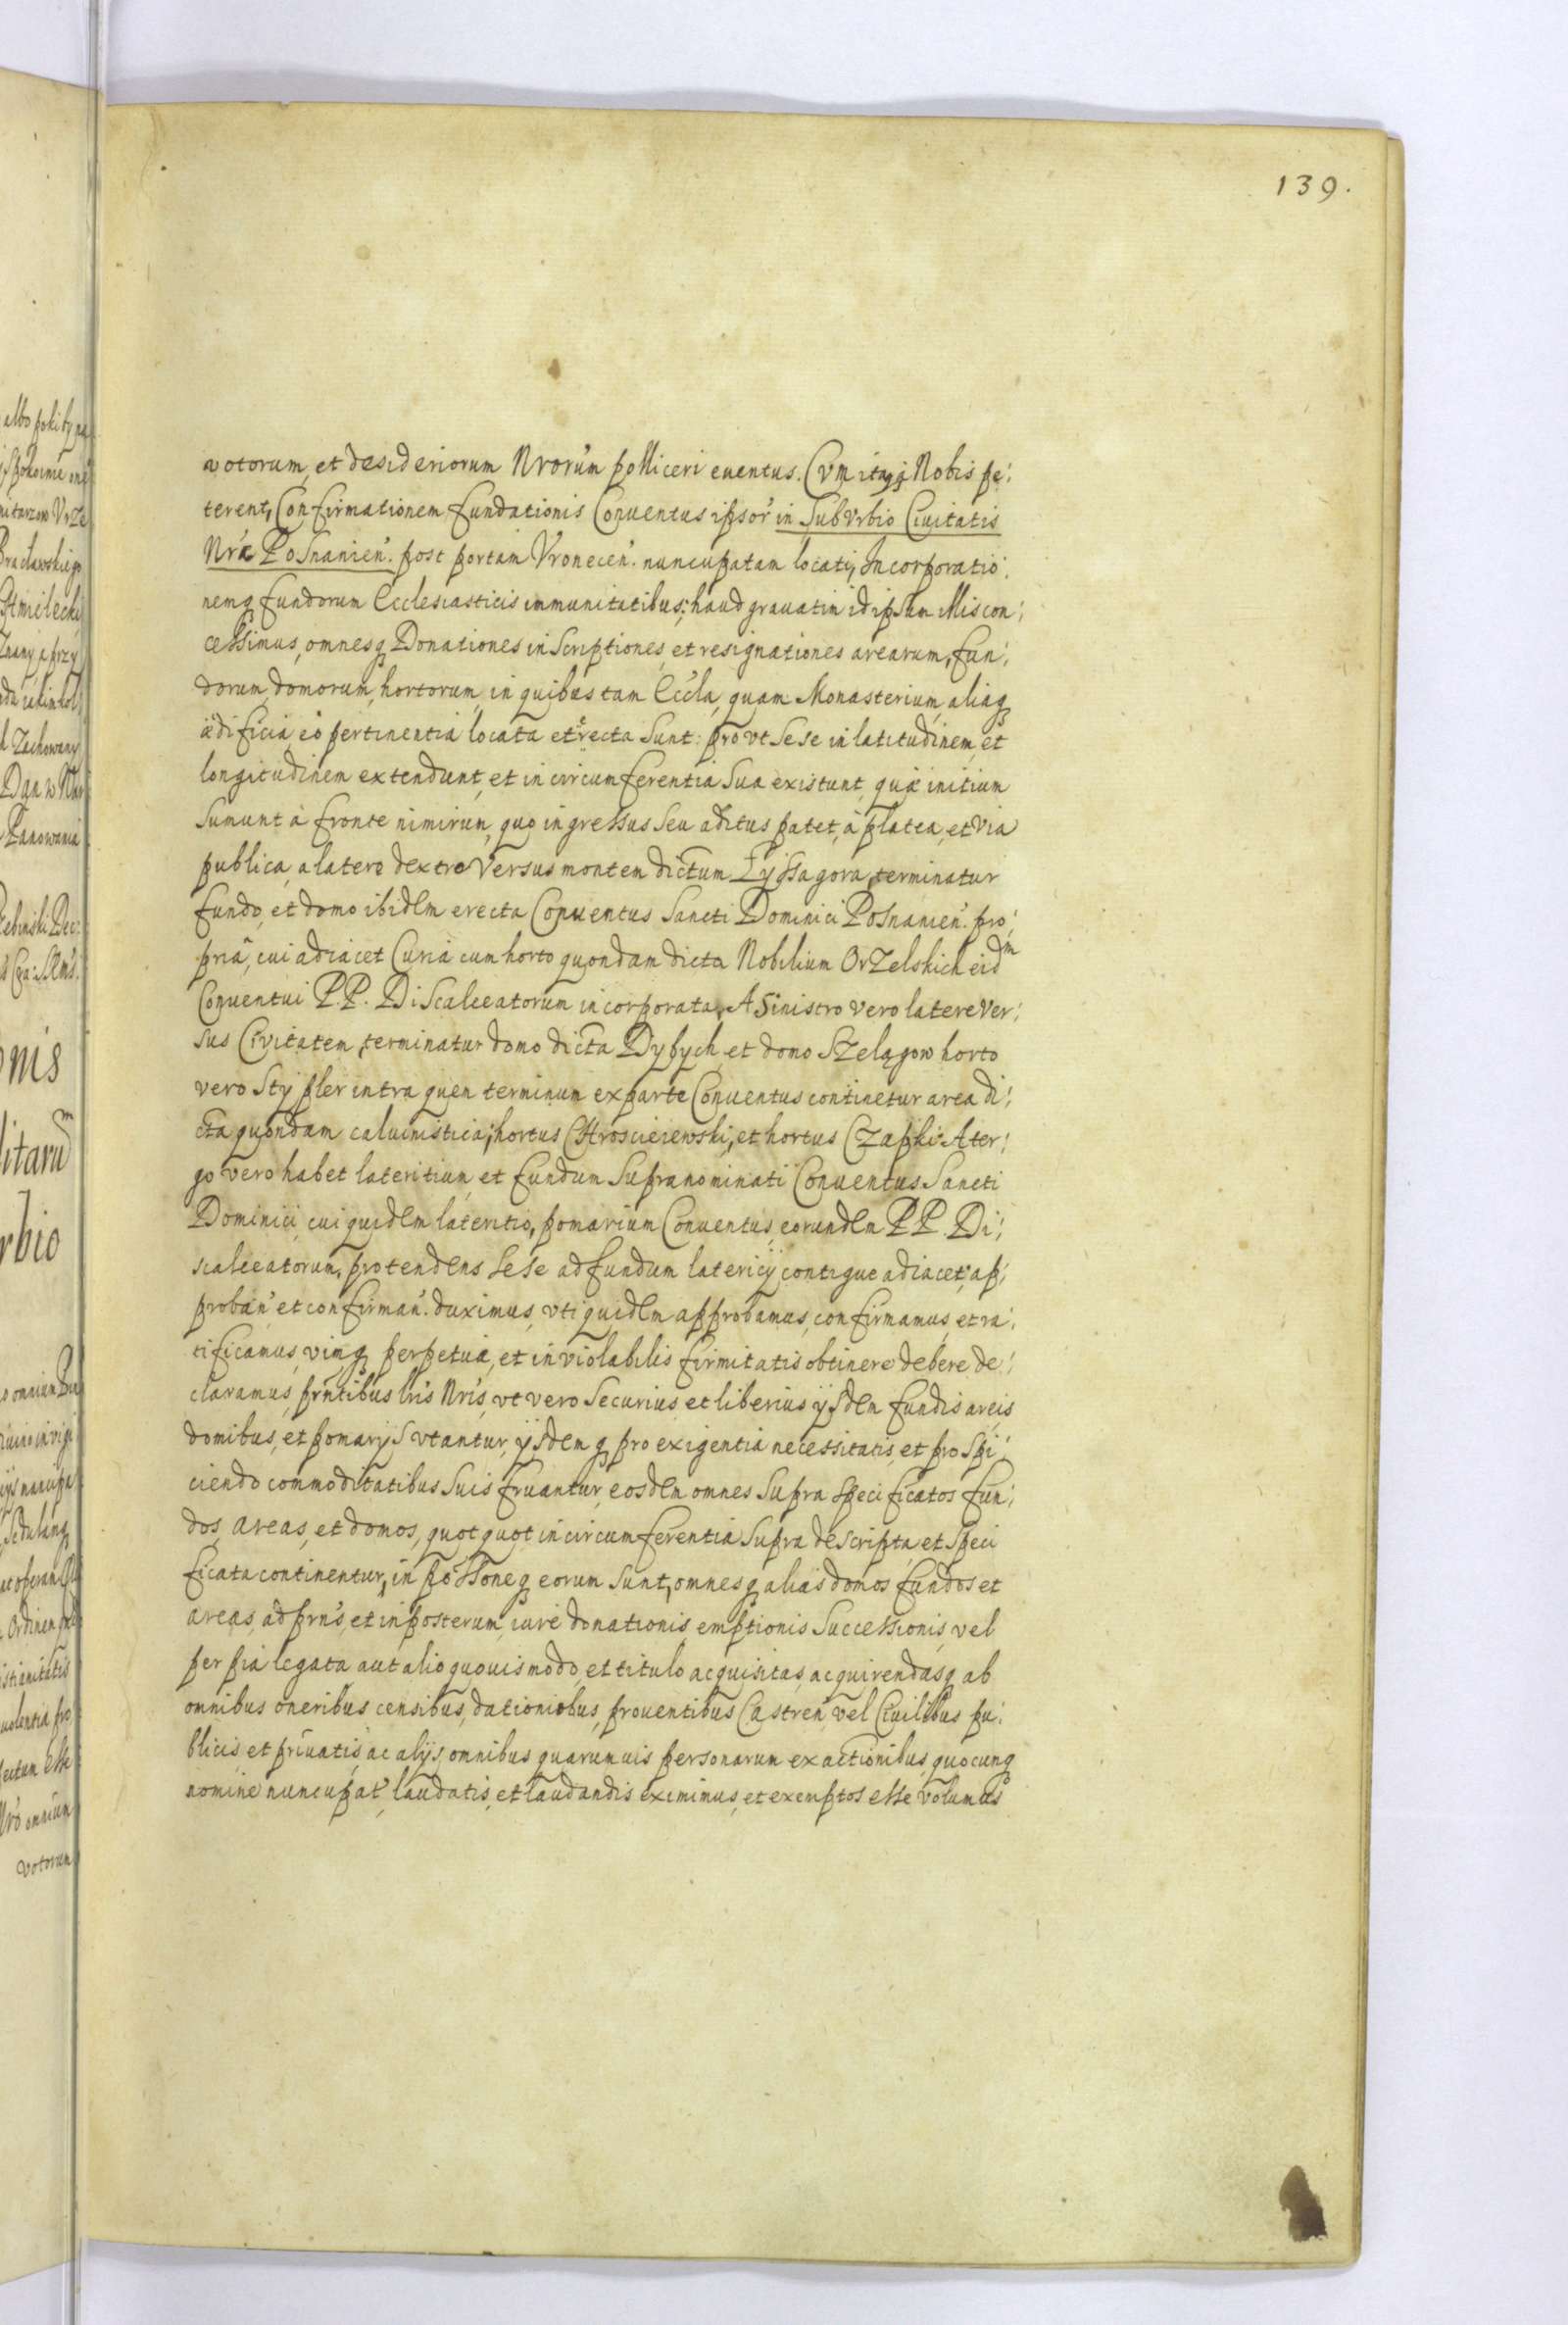 139.
votorum, et desideriorum Nrorum polliceri euentus. Cum itaq; Nobis pe:
terent, Confirmationem Fundationis Conuentus ipsor in SubVrbio Ciuitatis
Nræ Posnanien. post portam Vronecen. nuncupatam locati, Incorporatio:
nemq Fundorum Ecclesiasticis immunitatibus; haud grauatim id ipsum Illis con:
cessimus, omnesq Donationes inscriptiones, et resignationes arearum, Fun:
dorum, domorum, hortorum, in quibus tam Eccla, quam Monasterium, aliaq
ædificia eò pertinentia locata et erecta sunt: pro vt sese in latitudinem, et
longitudinem extendunt, et in circumferentia sua existunt, quæ initium
sumunt à fronte nimirum, quo ingressus seu aditus patet, à platea, et via
publica, a latere dextro versus montem dictum Łyssa gora, terminatur
fundo, et domo ibidem erecta Conuentus Sancti Dominici Posnanien. pro:
pria, cui adiacet Curia cum horto quondam dicta Nobilium Orzelskich eidm
Conuentui P.P. Discalceatorum incorporata, A Sinistro vero latere ver:
sus Civitatem, terminatur domo dicta Dybych, et domo Szelągow horto
vero Stypler intra quem terminum ex parte Conuentus continetur area di:
cta quondam caluinistica; hortus Chroscieiewski, et hortus Czapki. A ter:
go vero habet lateritium, et fundum supranominati Conuentus Sancti
Dominici, cui quidem lateritio, pomarium Conuentus, eorundem P.P. Di:
scalceatorum, protendens sese ad fundum latericij contigue adiacet, ap:
proban, et confirman. duximus, vti quidem approbamus, confirmamus, et ra:
tificamus, vimq perpetuæ, et inviolabilis firmitatis obtinere debere de:
claramus, prntibus lris Nris, vt vero securius, et liberius ijsdem fundis areis
domibus, et pomarijs vtantur, ijsdemq pro exigentia necessitatis, et prospi:
ciendo commoditatibus suis fruantur, eosdem omnes supra specificatos fun:
dos, areas, et domos, quotquot in circumferentia supra descripta, et speci
ficata continentur, in possoneq eorum sunt, omnesq alias domos fundos et
areas, ad prns, et in posterum, iure donationis, emptionis successionis, vel
per pia legata aut alio quouismodo, et titulo acquisitas, acquirendasq ab
omnibus oneribus censibus, dationibus, prouentibus Castren, vel Ciuilibus pu:
blicis, et priuatis, ac alijs, omnibus quarumuis personarum exactionibus, quocunq
nomine nuncupat, laudatis, et laudandis eximimus, et exemptos esse volumus